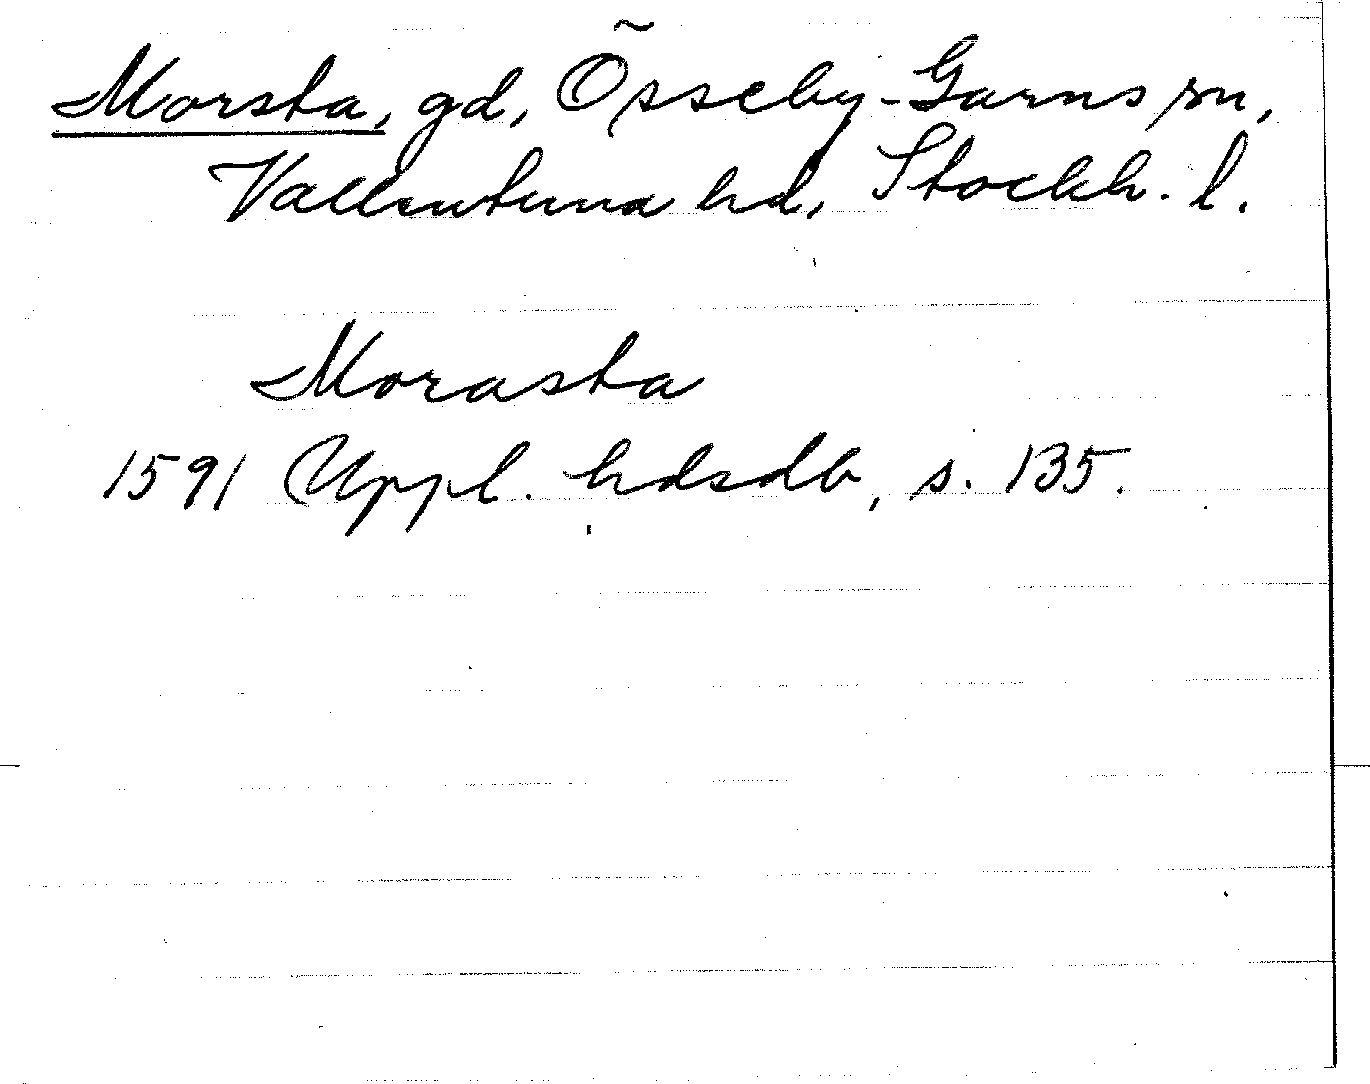 Morsta, gd, Össeby-Garns sn,
Vallentuna hd, Stockh. l.
Morasta
1591 Uppl. hdsdb, s. 135.